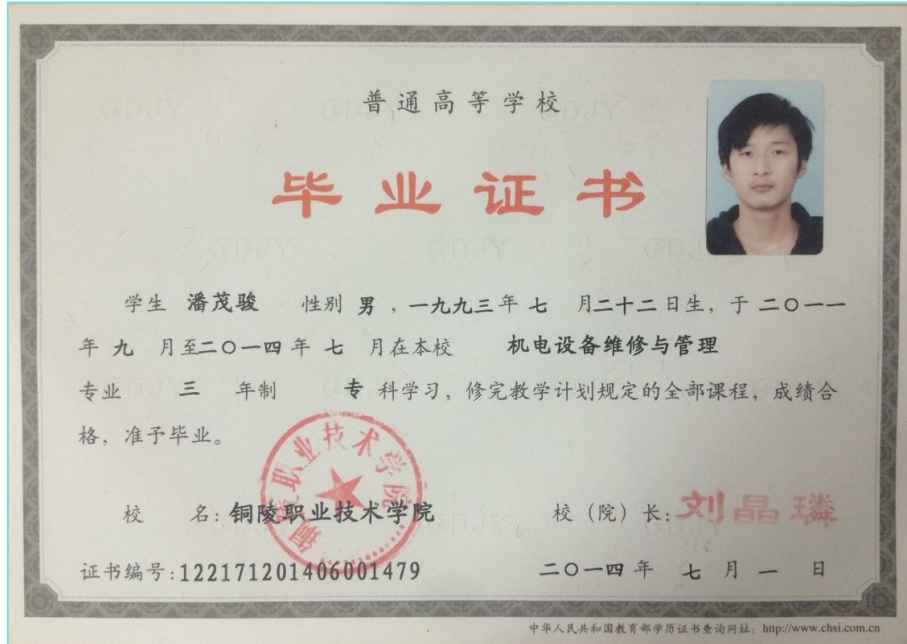 普通高等学校
毕业证书
学生 潘茂骏 性别 男，一九九三年 七 月二十二日生，于二〇一一
年 九 月至二〇一四年 七 月在本校 机电设备维修与管理
专业 三 年制 专 科学习，修完教学计划规定的全部课程，成绩合
格，准予毕业。
铜陵职业技术学院
校 名：铜陵职业技术学院 校（院）长：刘晶璘
证书编号：122171201406001479 二〇一四年 七 月 一 日
中华人民共和国教育部学历证书查询网址：http://www.chsi.com.cn